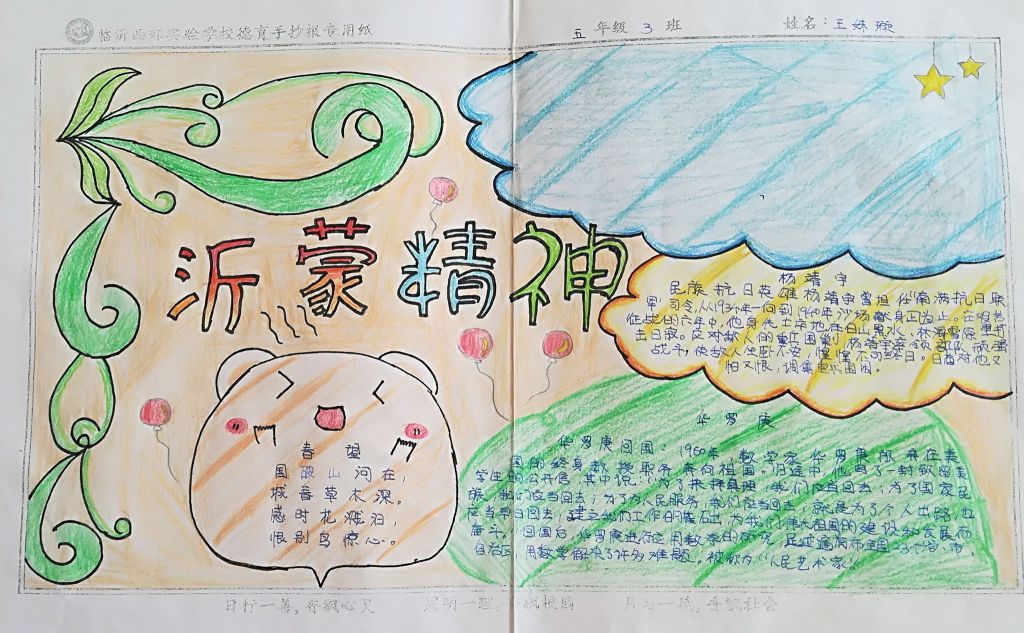 临沂西郊实验学校德育手抄报专用纸
五年级 3 班
姓名:王姝璇
沂蒙精神
杨靖宇
民族抗日英雄杨靖宇曾担任“南满抗日联
军”司令,从1934年一向到1940年沙场献身正为止。在艰苦
征战的六年中,他身先士卒地在白山黑水、林海雪原里打
击日寇。应对敌人的重围剿,杨靖宇率领部队顽强
战斗,使敌人坐卧不安,惶惶不可终日。日酋对他又
怕又恨,调集重兵围困。
华罗庚
华罗庚回国:1950年,数学家华罗庚放弃在美
国的终身教授职务,奔向祖国。归途中,他写了一封致留美
学生的公开信,其中说:“为了抉择真理,我们应当回去;为了国家民
族,我们应当回去;为了为人民服务,我们应当回去。就是为了个人出路,也
应当早日回去,建立我们工作的基石,为我们伟大祖国的建设和发展而
奋斗。”回国后,华罗庚进行应用数学的研究,足迹遍布全国23个省、市、
自治区,用数学解决了许多难题。被称为“人民艺术家”
春望
国破山河在,
城春草木深。
感时花溅泪,
恨别鸟惊心。
日行一善,香飘心灵
周明一理,香飘校园
月习一德,香飘社会